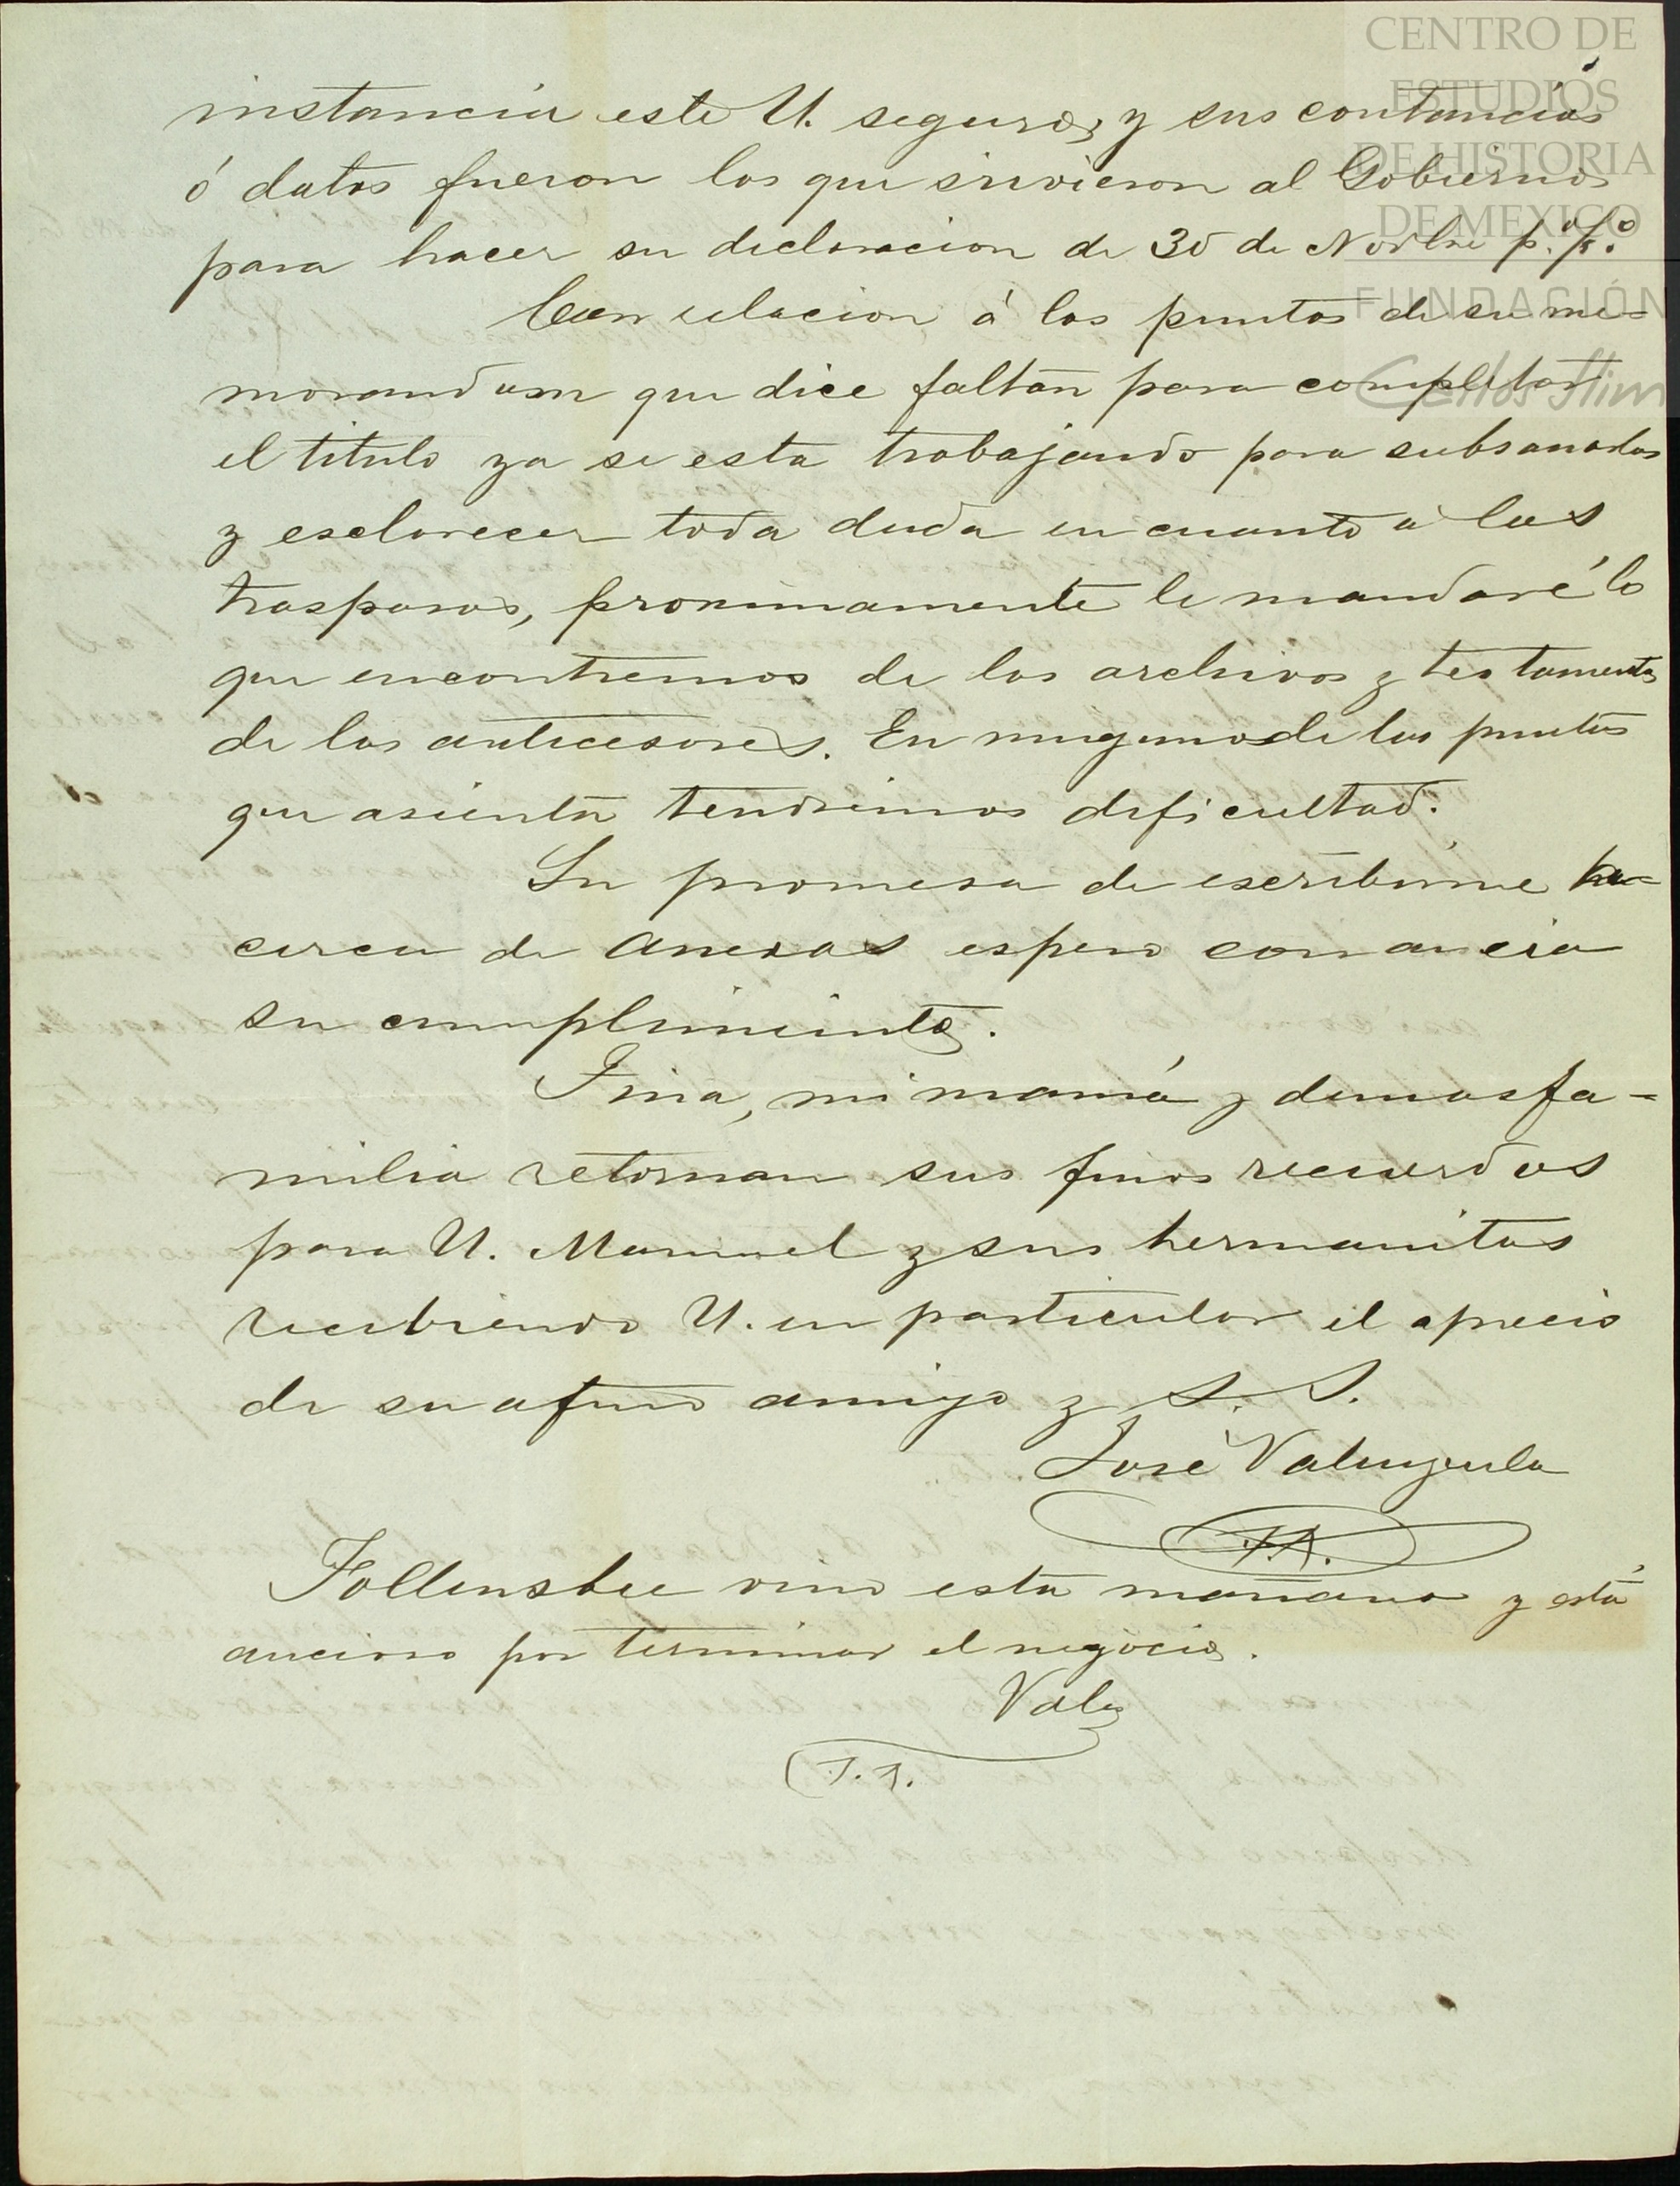 CENTRO DE
ESTUDIOS
DE HISTORIA
DE MEXICO
FUNDACIÓN
Carlos Slim
instancia este U. seguro, y sus contancias
ó datos fueron los que sirvieron al Gobierno
para hacer su declaracion de 30 de Novbre p.º p.º
Con relacion á los puntos de su me-
morandum que dice faltan para completar
el titulo ya se esta trabajando para subsanarlos
y esclarecer toda duda en cuanto á los
traspasos, proximamente le mandaré lo
que encontremos de los archivos y testamentos
de los antecesores. En ninguno de los puntos
que asienta tendremos dificultad.
Su promesa de escribirme
cerca de Anexas espero con ancia
su cumplimiento.
Trina, mi mamá y demas fa-
milia retornan sus finos recuerdos
para U. Manuel y sus hermanitas
recibiendo U. en particular el aprecio
de su afmo amigo y S. S.
José Valenzuela
Follensbee vino esta mañana y está
ancioso por terminar el negocio.
Valz